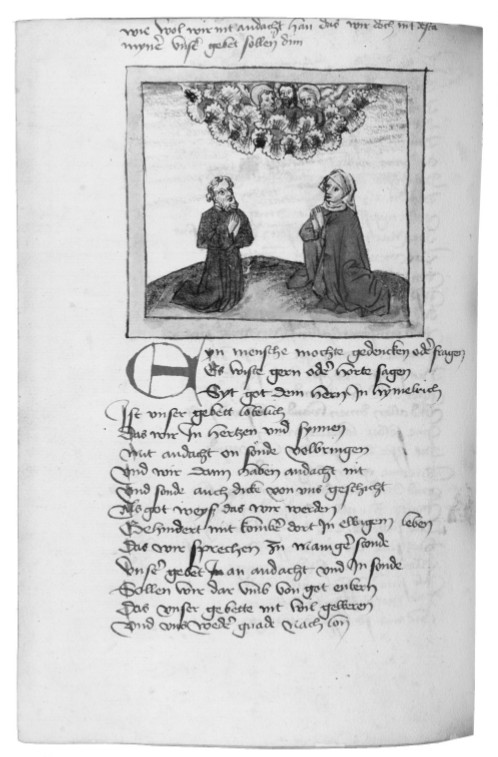 wie wol wir nit andacht han das wir doch nit desta
mynẽ vnsẽ gebet sollen dun
Eyn mensche mochte gedencken odẽ fragen
Es wiste gern odẽ horte sagen
Syt got dem hern In hymelrich
Ist vnser gebett lobelich
Das wir In hertzen vnd synnen
Mit andacht on sonde volbringen
Vnd wir dann haben andacht nit
Vnd sonde auch dicke von vns geschicht
Als got weyß das wir werden
Gehindert mit dort In ewigen leben
Das wir sprechen In manigẽ stonde
Vnsẽ gebet an andacht vnd In sonde
Sollen wir dar vmb von got enbern
Das vnser gebette nit wil geweren
Vnd vns wedẽ gnade nach lon